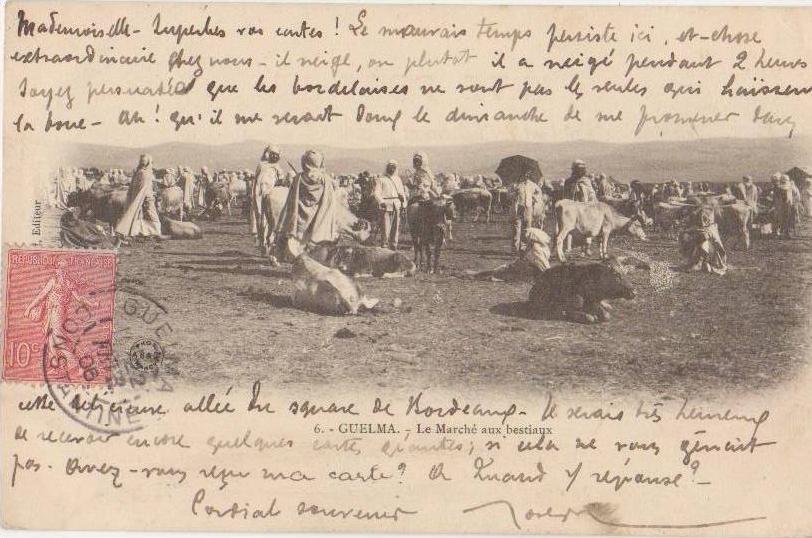 Mademoiselle - Superbes vos cartes ! Le mauvais temps persiste ici, et - chose
extraordinaire chez nous - il neige, ou plutôt il a neigé pendant 2 heures
Soyez persuadée que les bordelaises ne sont pas les seules qui haïssent
la boue - Ah ! qu'il me serait doux le dimanche de me promener dans
Editeur
REPUBLIQUE FRANÇAISE
10c
GUELMA
CONSTANTINE
cette délicieuse allée du square de Bordeaux - Je serais très heureux
6. - GUELMA. - Le Marché aux bestiaux
de recevoir encore quelques cartes géantes ; si cela ne vous gênait
pas - Avez-vous reçu ma carte ? A quand 1/ réponse ? -
Cordial souvenir